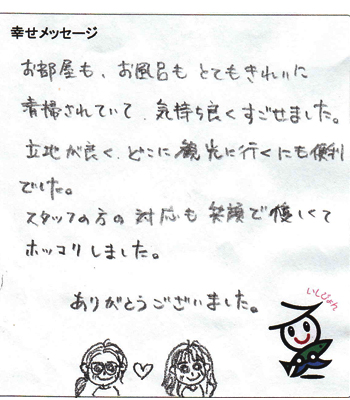 幸せメッセージ
お部屋も、お風呂もとてもきれいに
清掃されていて、気持ち良くすごせました。
立地が良く、どこに観光に行くにも便利
でした。
スタッフの方の対応も笑顔で優しくて
ホッコリしました。
ありがとうございました。
いしぴょん